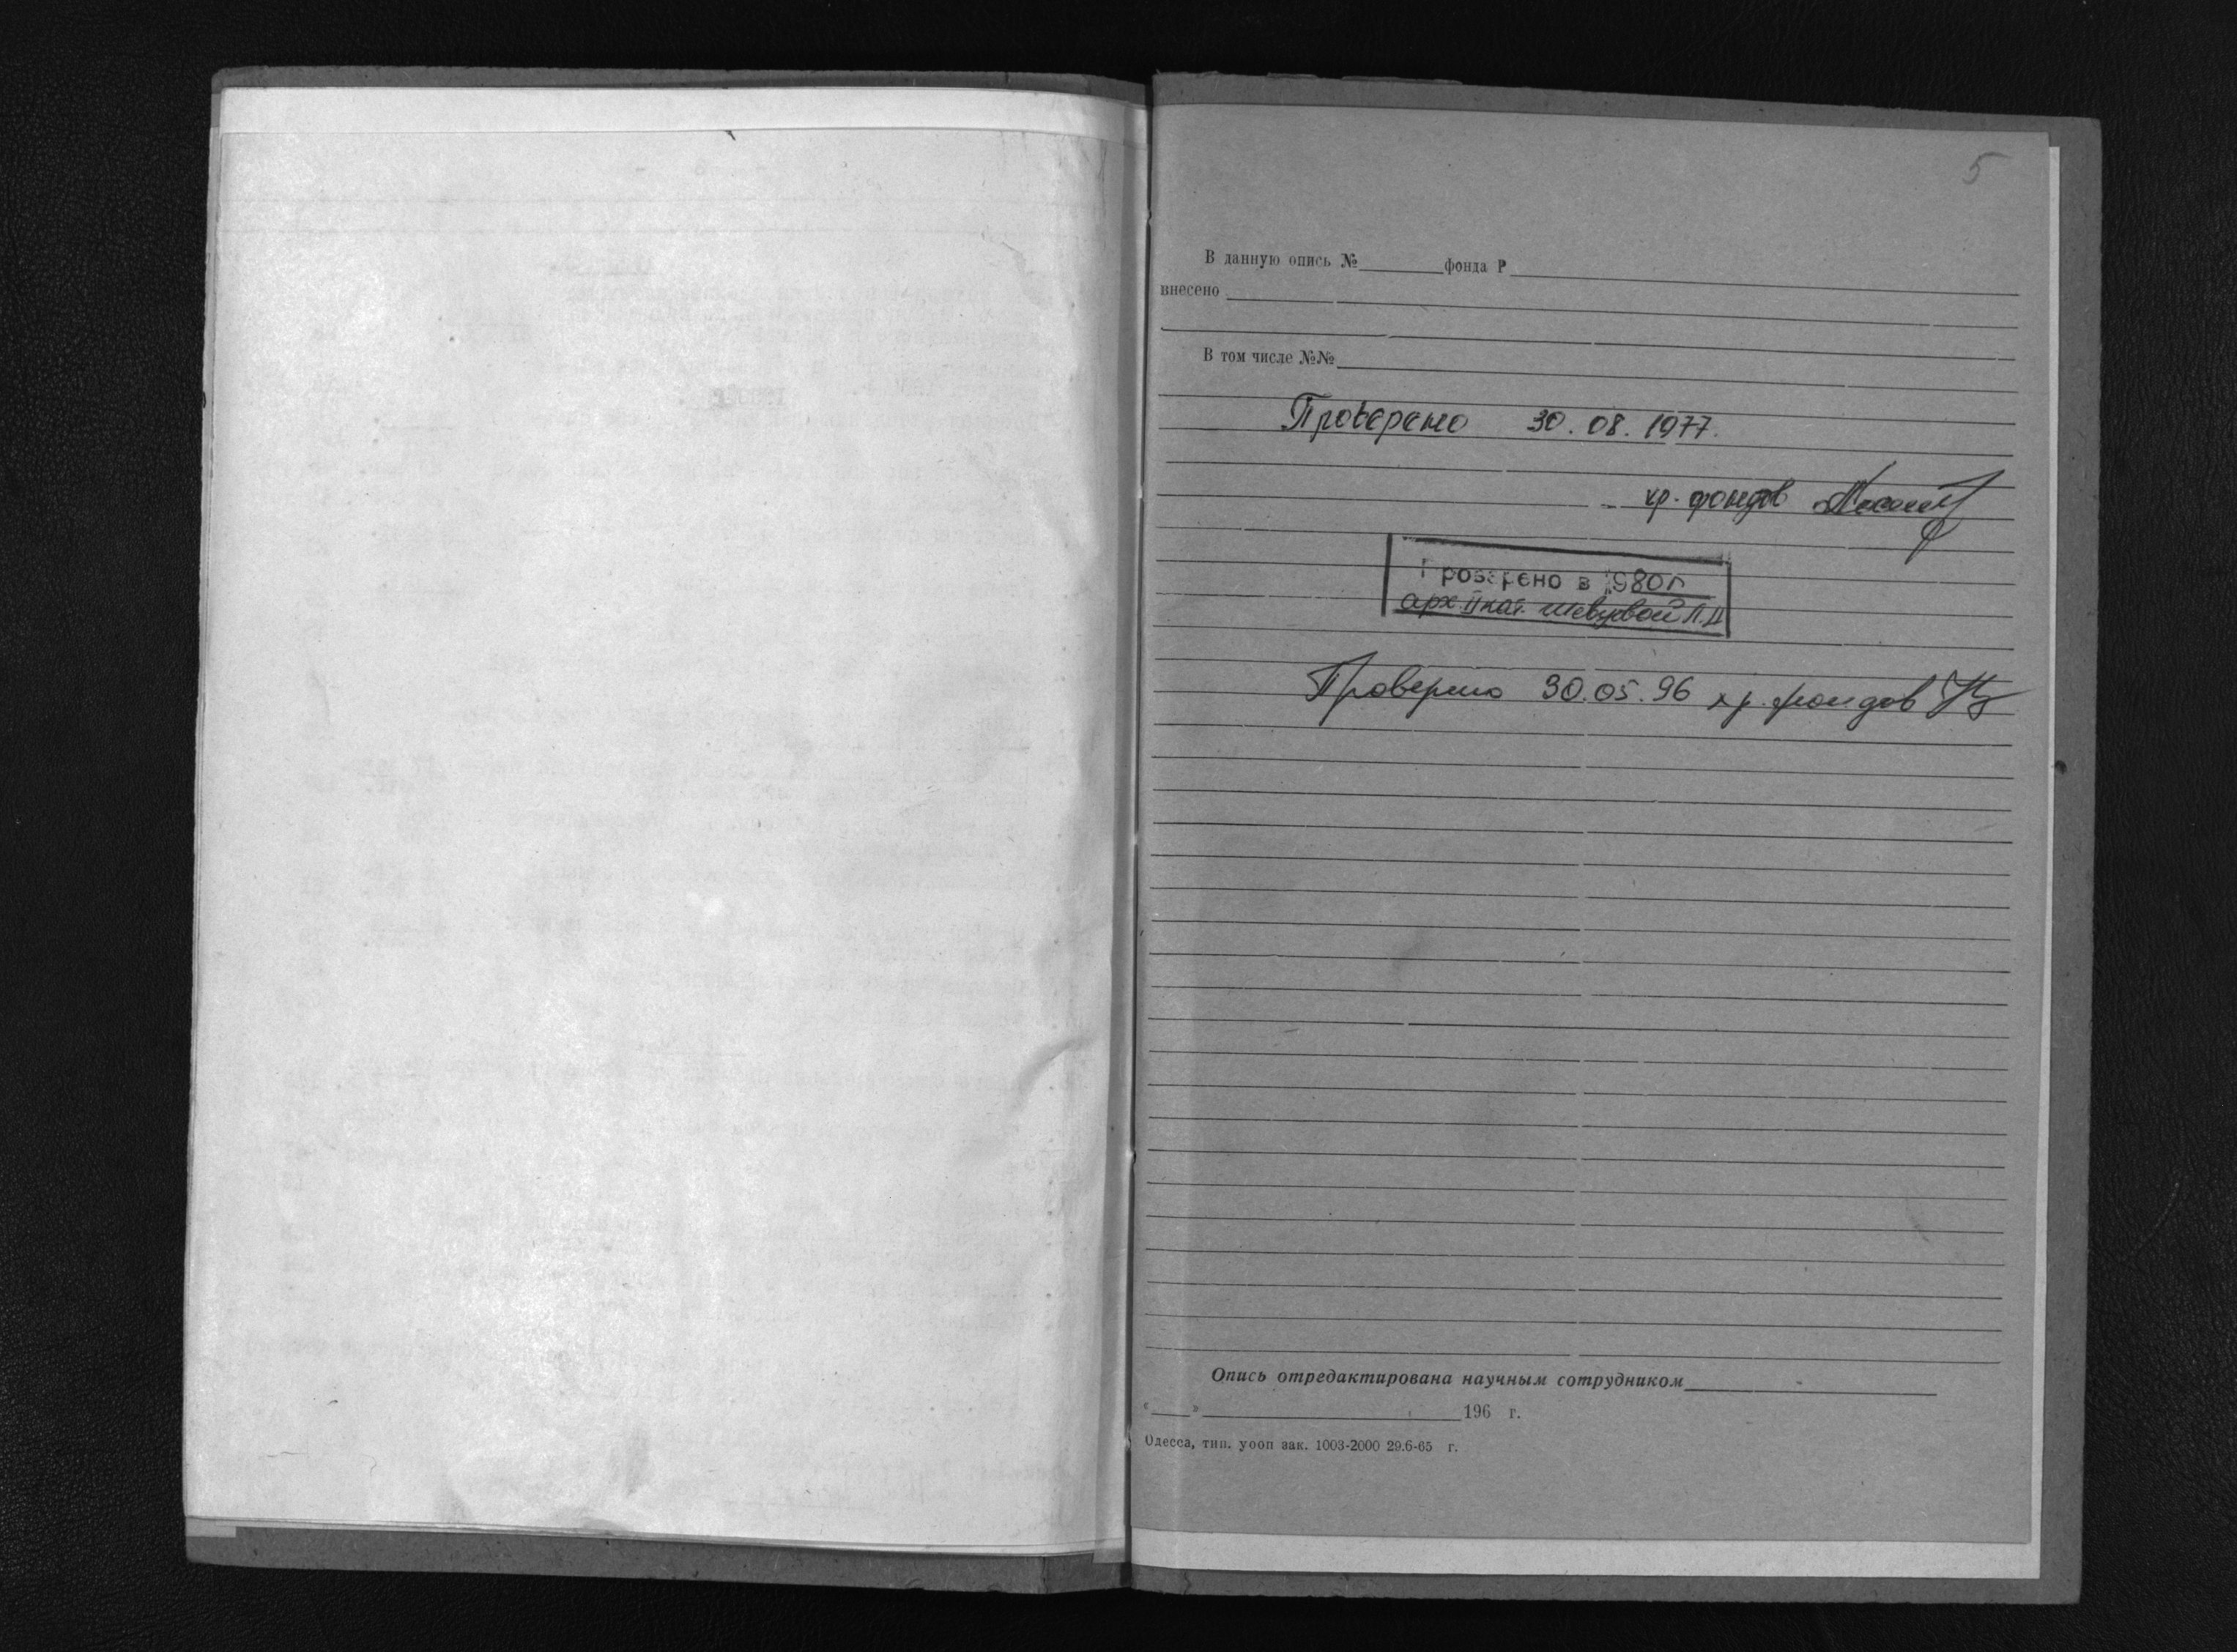 5
В данную опись № фонда Р
внесено
В том числе №№
Проверено 30.08.1977.
хр. фондов
Проверено в 1980 г
арх. II кат. Шевцовой Л.Д
Проверено 30.05.96 хр. фондов
Опись отредактирована научным сотрудником
« » 196 г.
Одесса, тип. уооп зак. 1003-2000 29.6-65 г.